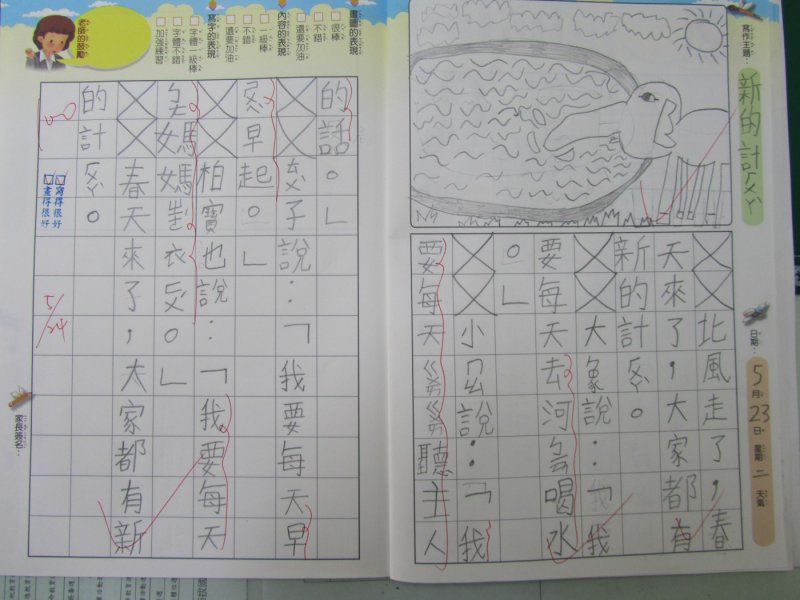 寫作主題：
新的計ㄏㄨㄚˋ
日期：5月23日 星期二 天氣
北風走了，春
天來了，大家都有
新的計ㄏㄨㄚˋ。
大象說：「我
要每天去河喝水
。」
小說：「我
要每天聽主人
的話。」
子說：「我要每天早
早起。」
柏寶也說：「我要每天
媽媽衣。」
春天來了，大家都有新
的計ㄏㄨㄚˋ。
畫圖的表現
很棒
不錯
還要加油
內容的表現
一級棒
不錯
還要加油
寫字的表現
字體一級棒
字體不錯
加強練習
老師的鼓勵
100
寫得很好
畫得很好
5/24
家長簽名：